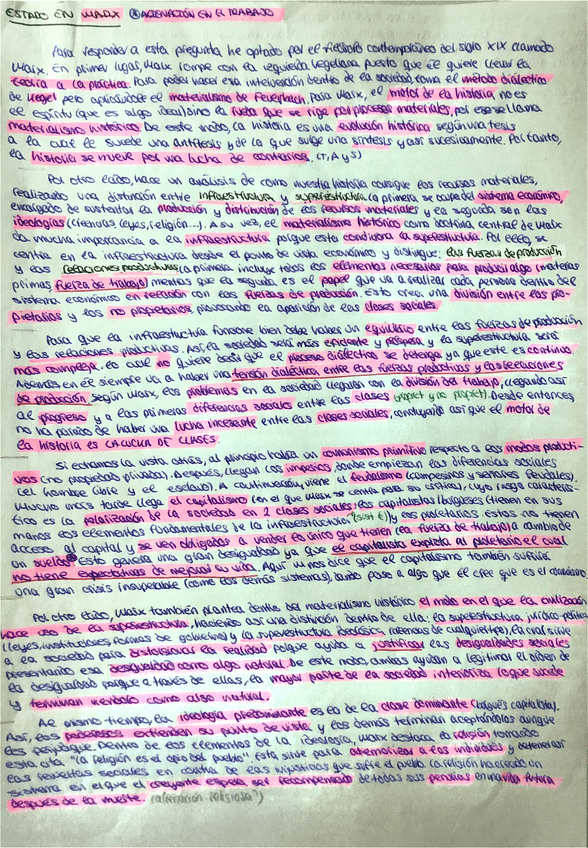 ESTADO EN MARX ⊗ALIENACIÓN EN EL TRABAJO
Para responder a esta pregunta, he optado por el filósofo contemporáneo del siglo XIX llamado
Marx. En primer lugar, Marx rompe con la izquierda hegeliana puesto que él quiere llevar la
teoría a la práctica. Para poder hacer esa intervención dentro de la sociedad, toma el método dialéctico
de Hegel pero aplicándole el materialismo de Feuerbach. Para Marx, el motor de la historia no es
el espíritu (que es algo ideal) sino la rueda que se rige por procesos materiales, por eso se llama
materialismo histórico. De este modo, la historia es una evolución histórica según una tesis
a la cual le sucede una antítesis y de la que surge una síntesis y así sucesivamente. Por tanto,
la historia se mueve por una lucha de contrarios. (T, A y S)
Por otro lado, hace un análisis de como nuestra historia consigue los recursos materiales,
realizando una distinción entre infraestructura y superestructura. La primera se ocupa del sistema económico,
encargado de sustentar la producción y distribución de los recursos materiales y la segunda son las
ideologías (creencias, leyes, religión...). A su vez, el materialismo histórico como doctrina central de Marx
da mucha importancia a la infraestructura porque esta condiciona la superestructura. Por ello, se
centra en la infraestructura desde el punto de vista económico y distingue: las fuerzas de producción
y las relaciones productivas. La primera incluye todos los elementos necesarios para producir algo (materias
primas, fuerza de trabajo) mientras que la segunda es el papel que va a realizar cada persona dentro del
sistema económico en relación con las fuerzas de producción. Esto crea una división entre los pro-
pietarios y los no propietarios provocando la aparición de las clases sociales.
Para que la infraestructura funcione bien debe haber un equilibrio entre las fuerzas de producción
y las relaciones productivas. Así, la sociedad será más eficiente y próspera y la superestructura será
más compleja. Lo cual no quiere decir que el proceso dialéctico se detenga ya que este es continuo.
Además, en él siempre va a haber una tensión dialéctica entre las fuerzas productivas y las relaciones
de producción. Según Marx, los problemas en la sociedad llegarán con la división del trabajo, llegando así
al progreso y a las primeras diferencias sociales entre las clases (propiet y no propiet). Desde entonces,
no ha parado de haber una lucha incesante entre las clases sociales, concluyendo así que el motor de
la historia es LA LUCHA DE CLASES.
Si echamos la vista atrás, al principio había un comunismo primitivo respecto a los modos producti-
vos (no propiedad privada). Después, llegan los imperios donde empiezan las diferencias sociales
(el hombre libre y el esclavo). A continuación, viene el feudalismo (campesinos y señores feudales).
Mucho más tarde llega el capitalismo (en el que Marx se centra para sus críticas) cuyo rasgo caracterís-
tico es la polarización de la sociedad en 2 clases sociales: los capitalistas (burgueses) tienen en sus
manos los elementos fundamentales de la infraestructura (sist E) y los proletarios. Estos no tienen
acceso al capital y se ven obligados a vender lo único que tienen (la fuerza de trabajo) a cambio de
un sueldo. Esto genera una gran desigualdad ya que el capitalista explota al proletario el cual
no tiene expectativas de mejorar su vida. Aquí Marx nos dice que el capitalismo también sufrirá
una gran crisis insuperable (como los demás sistemas), dando paso a algo que él cree que es el comunismo
Por otro lado, Marx también plantea dentro del materialismo histórico el modo en el que la civilización
hace uso de la superestructura, haciendo así una distinción dentro de ella: la superestructura jurídico-política
(leyes, instituciones, formas de gobierno) y la superestructura ideológica (además de cualquier tipo), la cual sirve
a la sociedad para distorsionar la realidad porque ayuda a justificar las desigualdades sociales
presentando esa desigualdad como algo natural. De este modo, ambas ayudan a legitimar el orden de
la desigualdad porque a través de ellas, la mayor parte de la sociedad interioriza lo que sucede
y terminan viéndolo como algo natural.
Al mismo tiempo, la ideología predominante es la de la clase dominante (burgués capitalista).
Así, los poderosos extienden su punto de vista y los demás terminan aceptándolos aunque
los perjudique. Dentro de los elementos de la ideología, Marx destaca la religión tomando
esta cita "la religión es el opio del pueblo". Esta sirve para atemorizar a los individuos y detener así
las revueltas sociales en contra de las injusticias que sufre el pueblo. La religión ha creado un
sistema en el que el creyente espera ser recompensado de todas sus penurias en una vida futura
después de la muerte. (alienación religiosa")